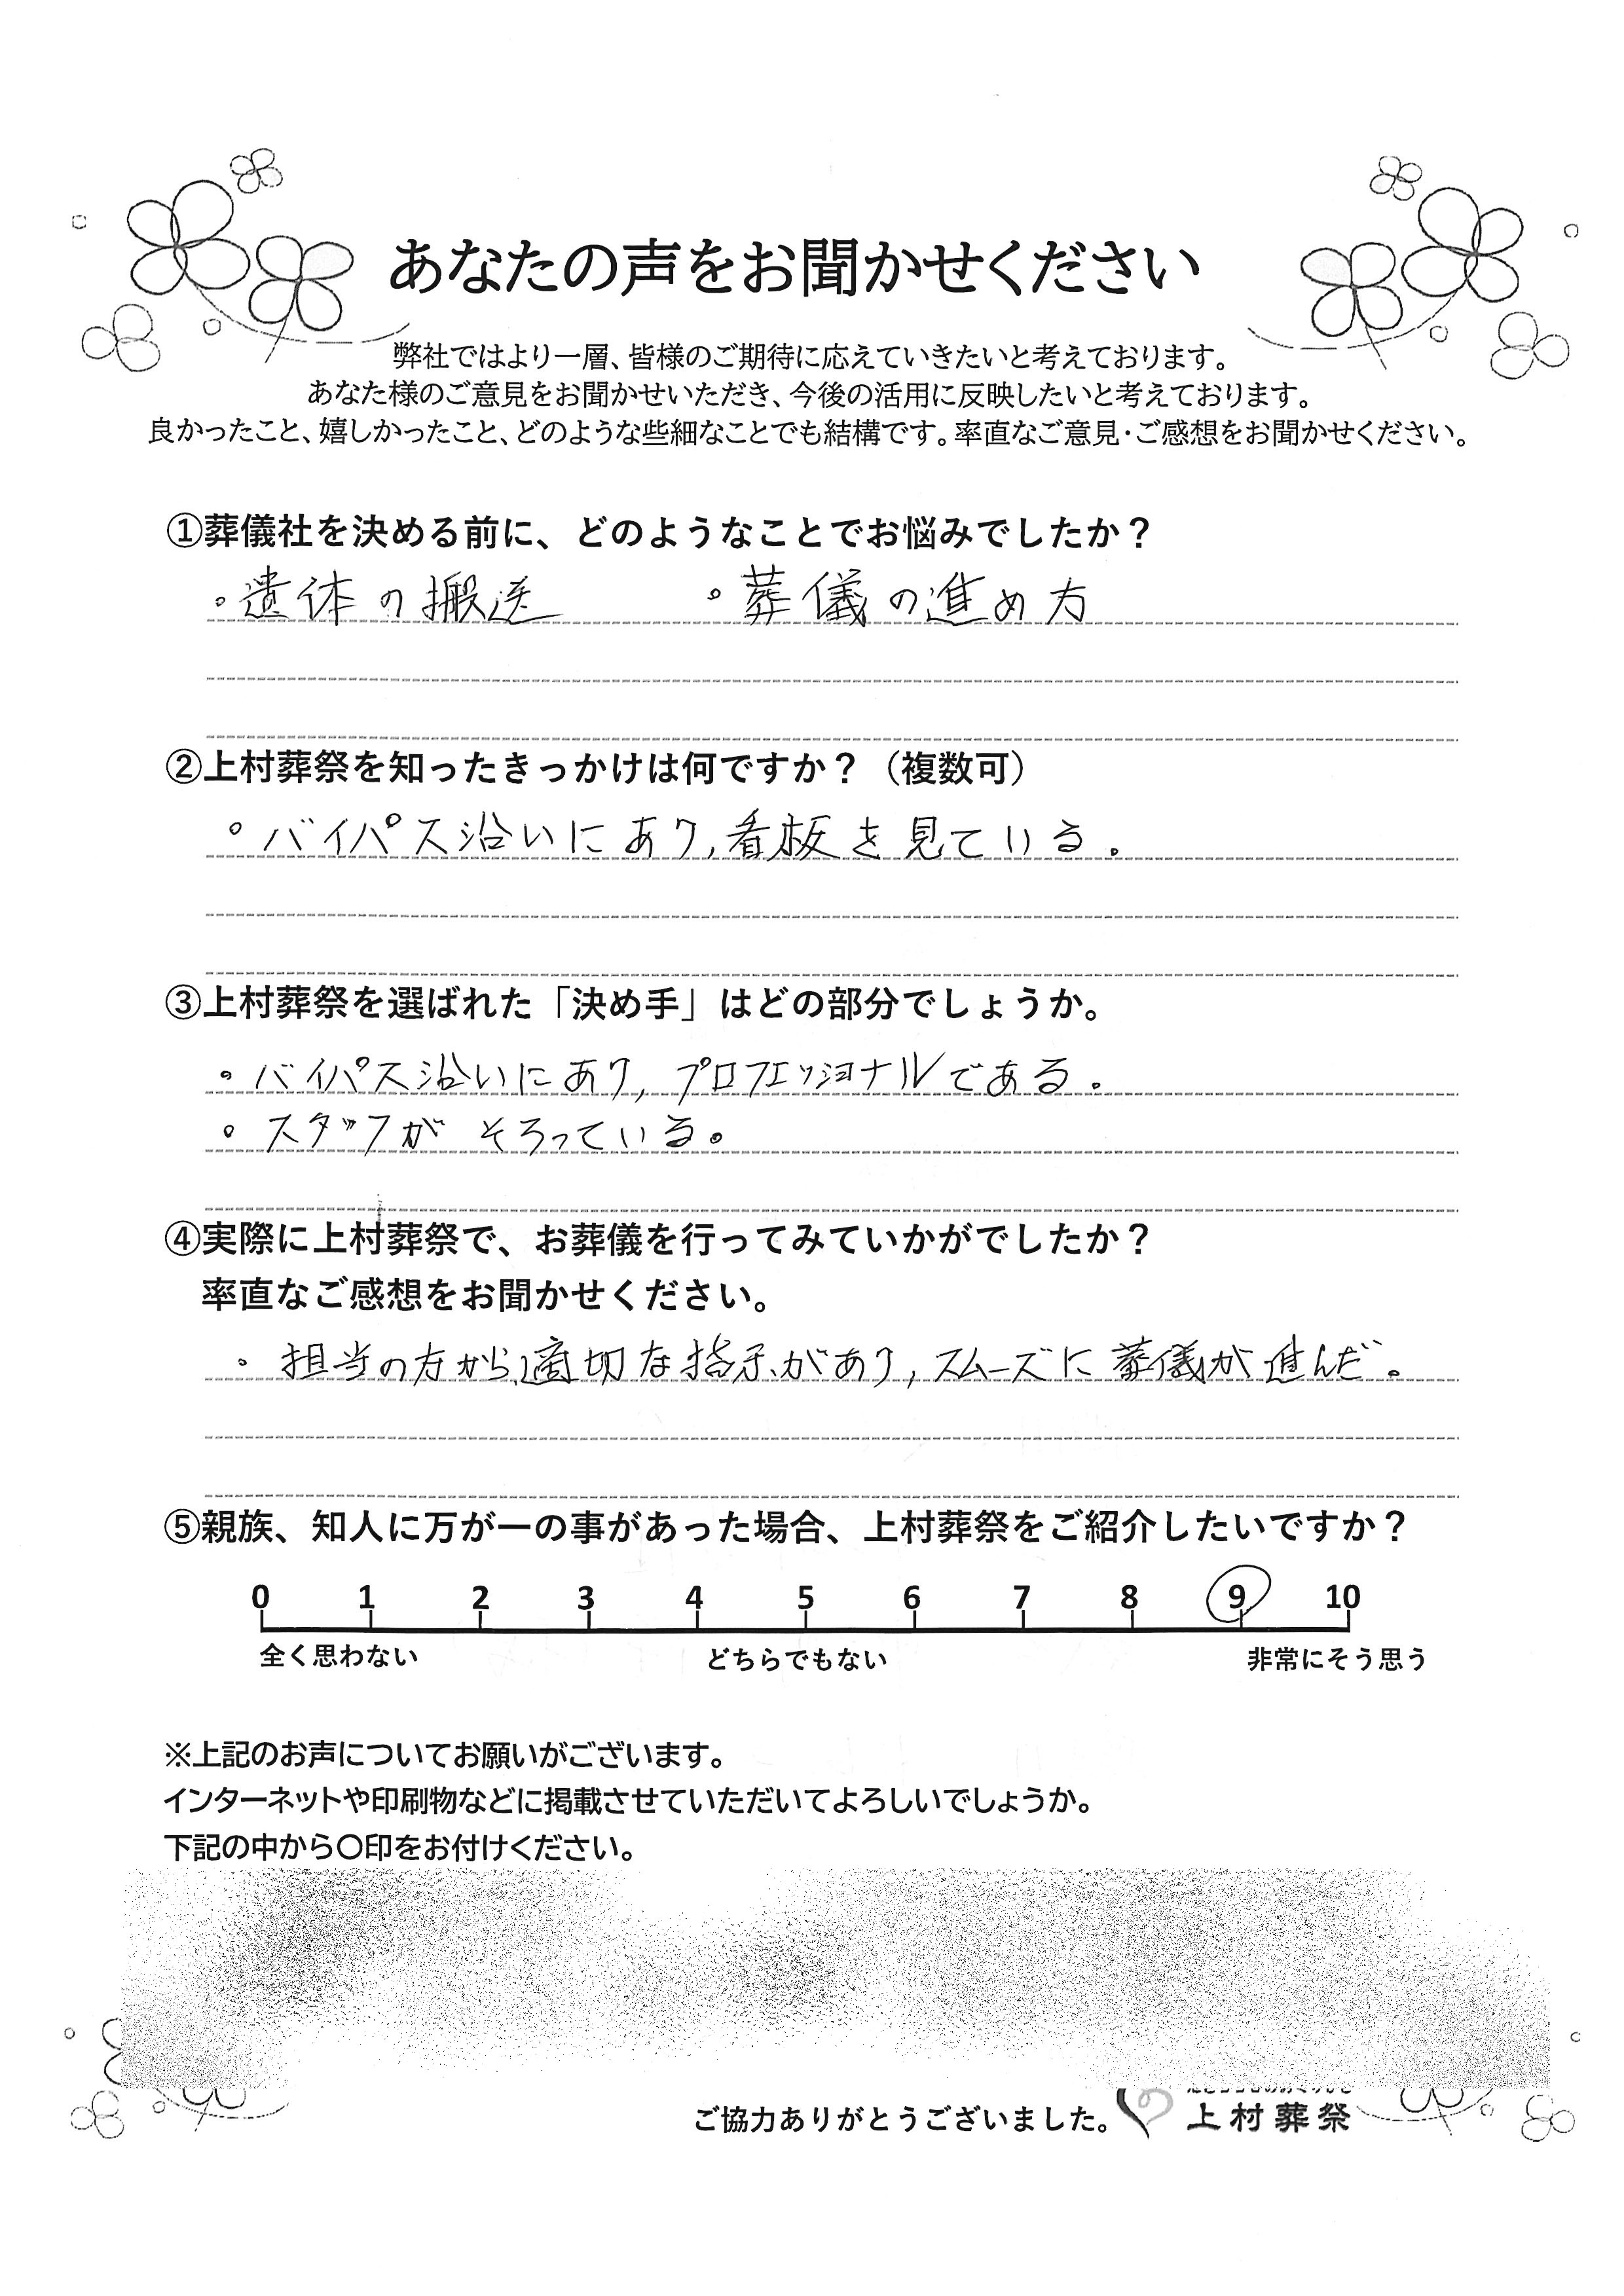 あなたの声をお聞かせください
弊社ではより一層、皆様のご期待に応えていきたいと考えております。
あなた様のご意見をお聞かせいただき、今後の活用に反映したいと考えております。
良かったこと、嬉しかったこと、どのような些細なことでも結構です。率直なご意見・ご感想をお聞かせください。
①葬儀社を決める前に、どのようなことでお悩みでしたか？
・遺体の搬送　・葬儀の進め方
②上村葬祭を知ったきっかけは何ですか？（複数可）
・バイパス沿いにあり,看板を見ている.
③上村葬祭を選ばれた「決め手」はどの部分でしょうか。
・バイパス沿いにあり,プロフェッショナルである.
・スタッフが そろっている。
④実際に上村葬祭で、お葬儀を行ってみていかがでしたか？
率直なご感想をお聞かせください。
・担当の方から、適切な指示があり,スムーズに葬儀が進んだ。
⑤親族、知人に万が一の事があった場合、上村葬祭をご紹介したいですか？
0 1 2 3 4 5 6 7 8 9 10
全く思わない どちらでもない 非常にそう思う
※上記のお声についてお願いがございます。
インターネットや印刷物などに掲載させていただいてよろしいでしょうか。
下記の中から〇印をお付けください。
ご協力ありがとうございました。 上村葬祭